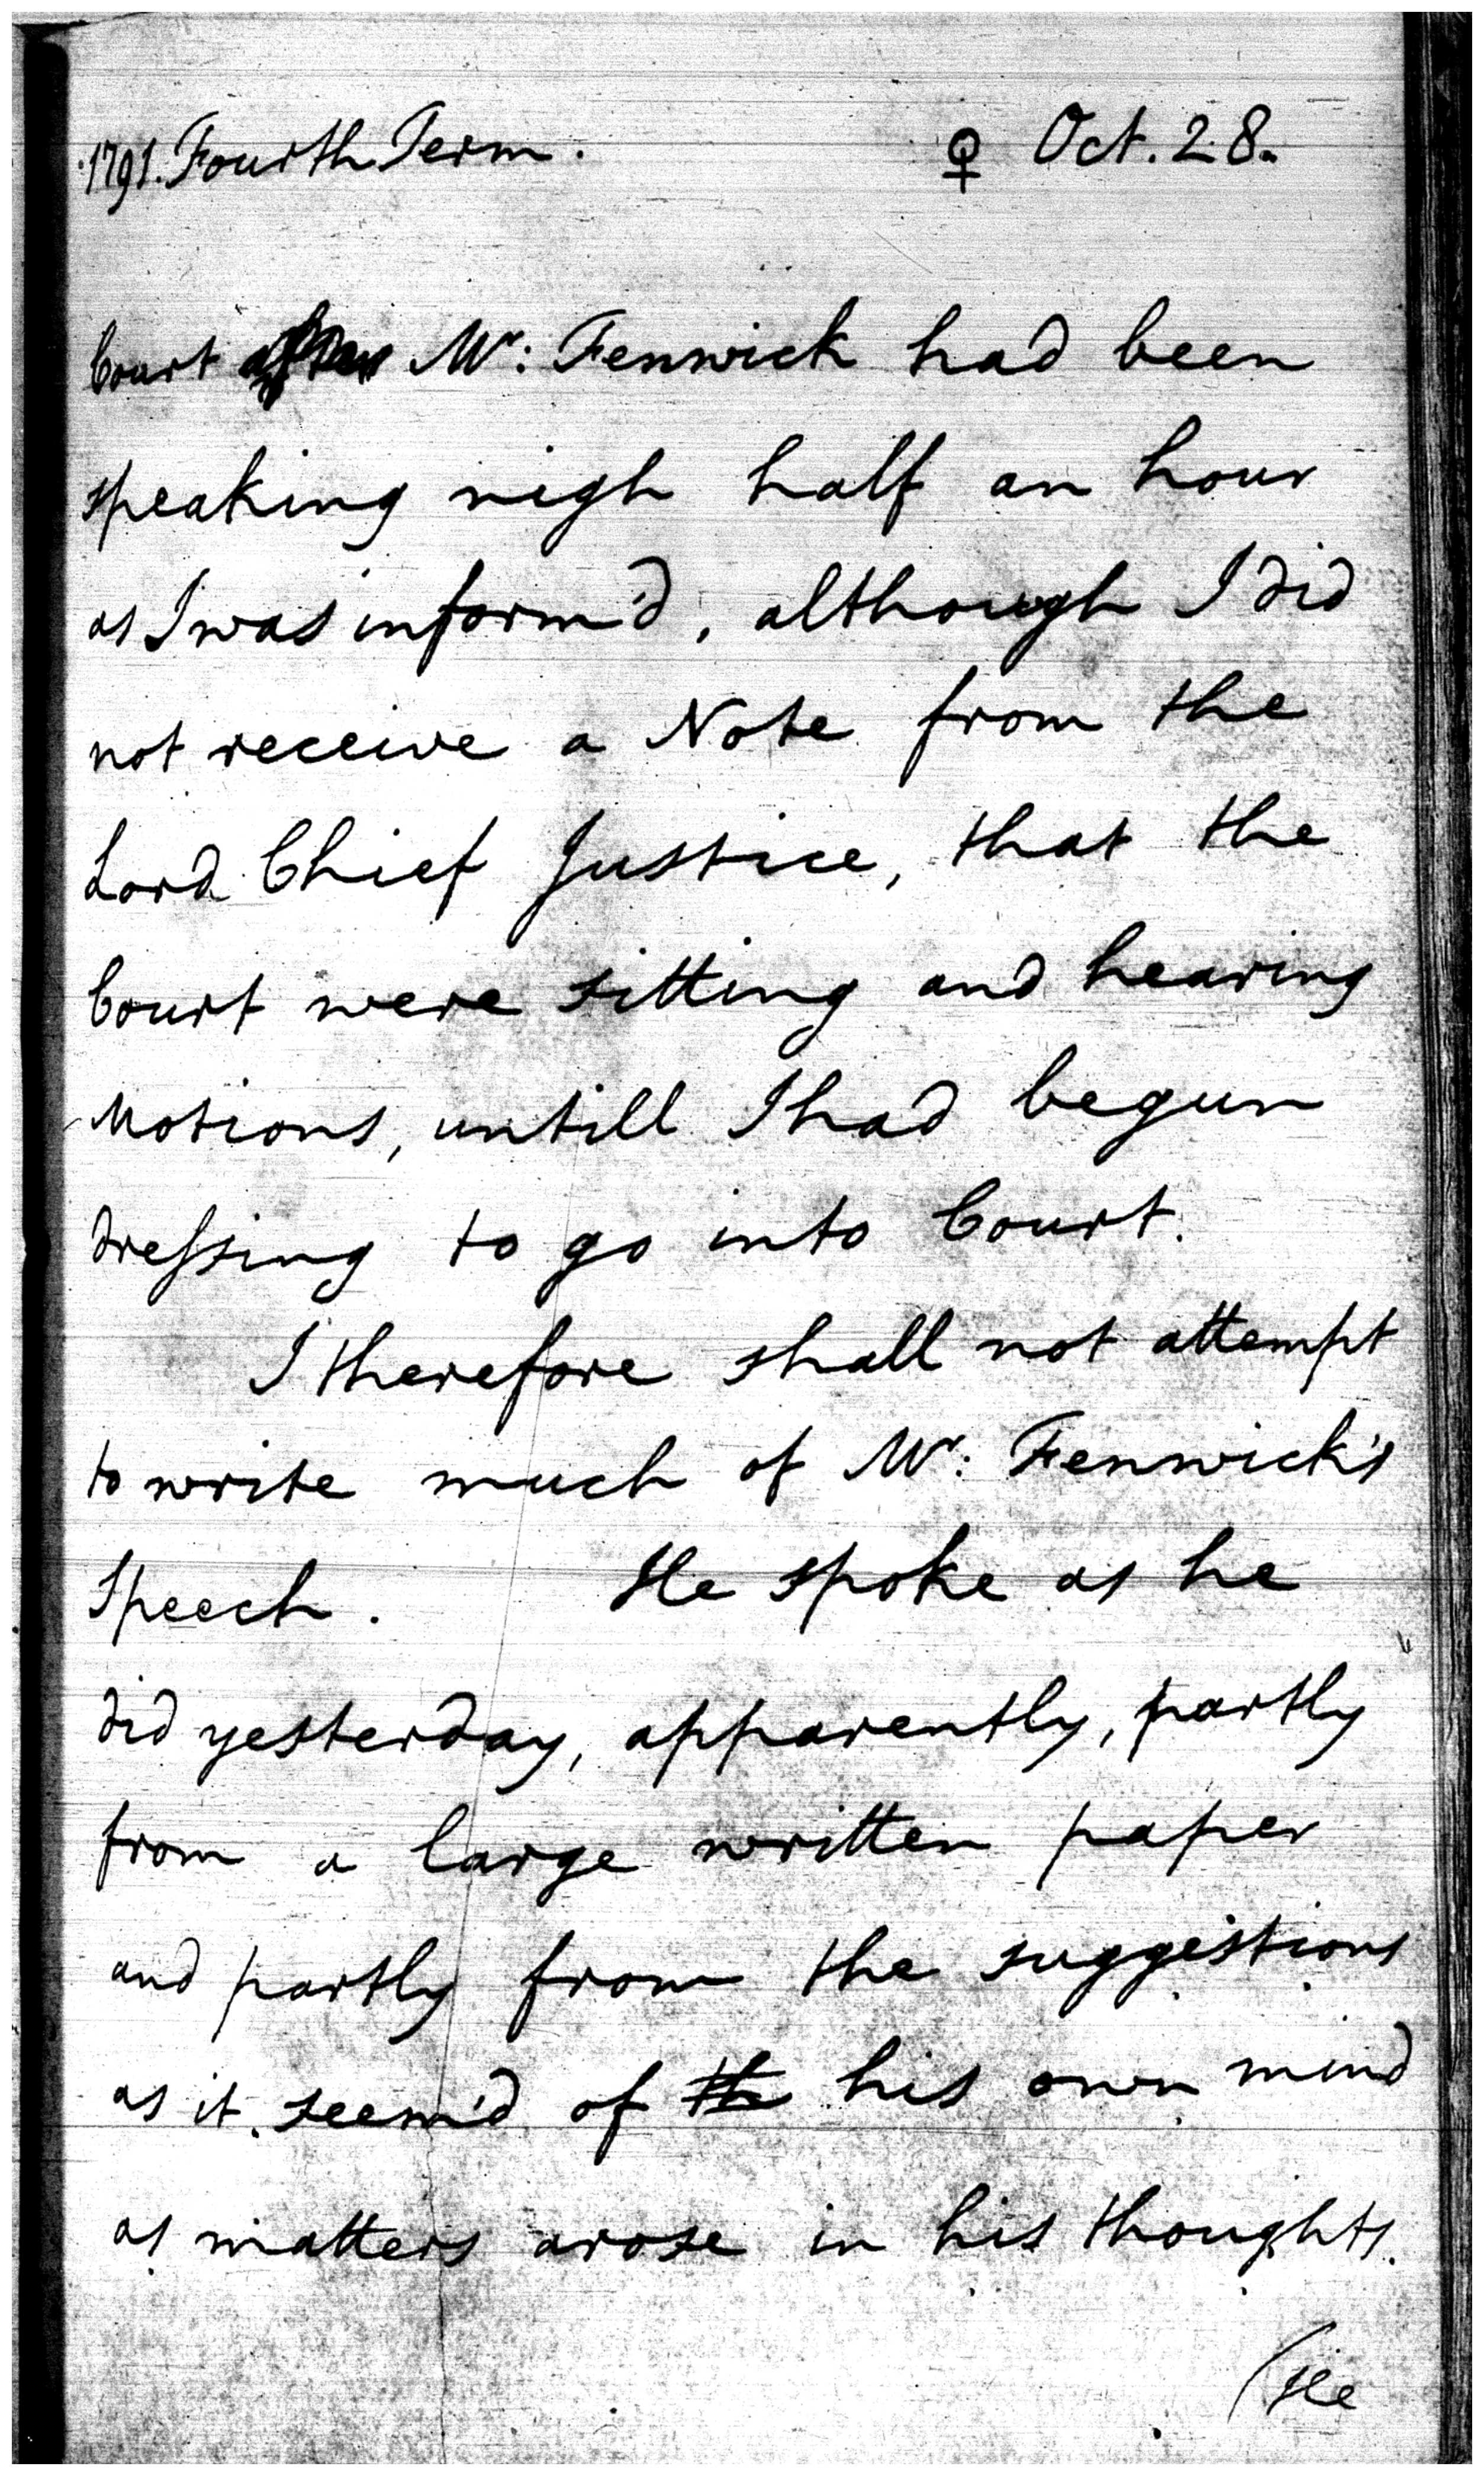 1791. Fourth Term. ♀ Oct. 28.
Court after Mr: Fenwick had been
speaking nigh half an hour
as I was inform'd, although I did
not receive a Note from the
Lord Chief Justice, that the
Court were sitting and hearing
Motions, untill I had begun
dressing to go into Court.
I therefore shall not attempt
to write much of Mr: Fenwick's
Speech. He spoke as he
did yesterday, apparently, partly
from a large written paper
and partly from the suggestions
as it seem'd of th his own mind
as matters arose in his thoughts.
(He